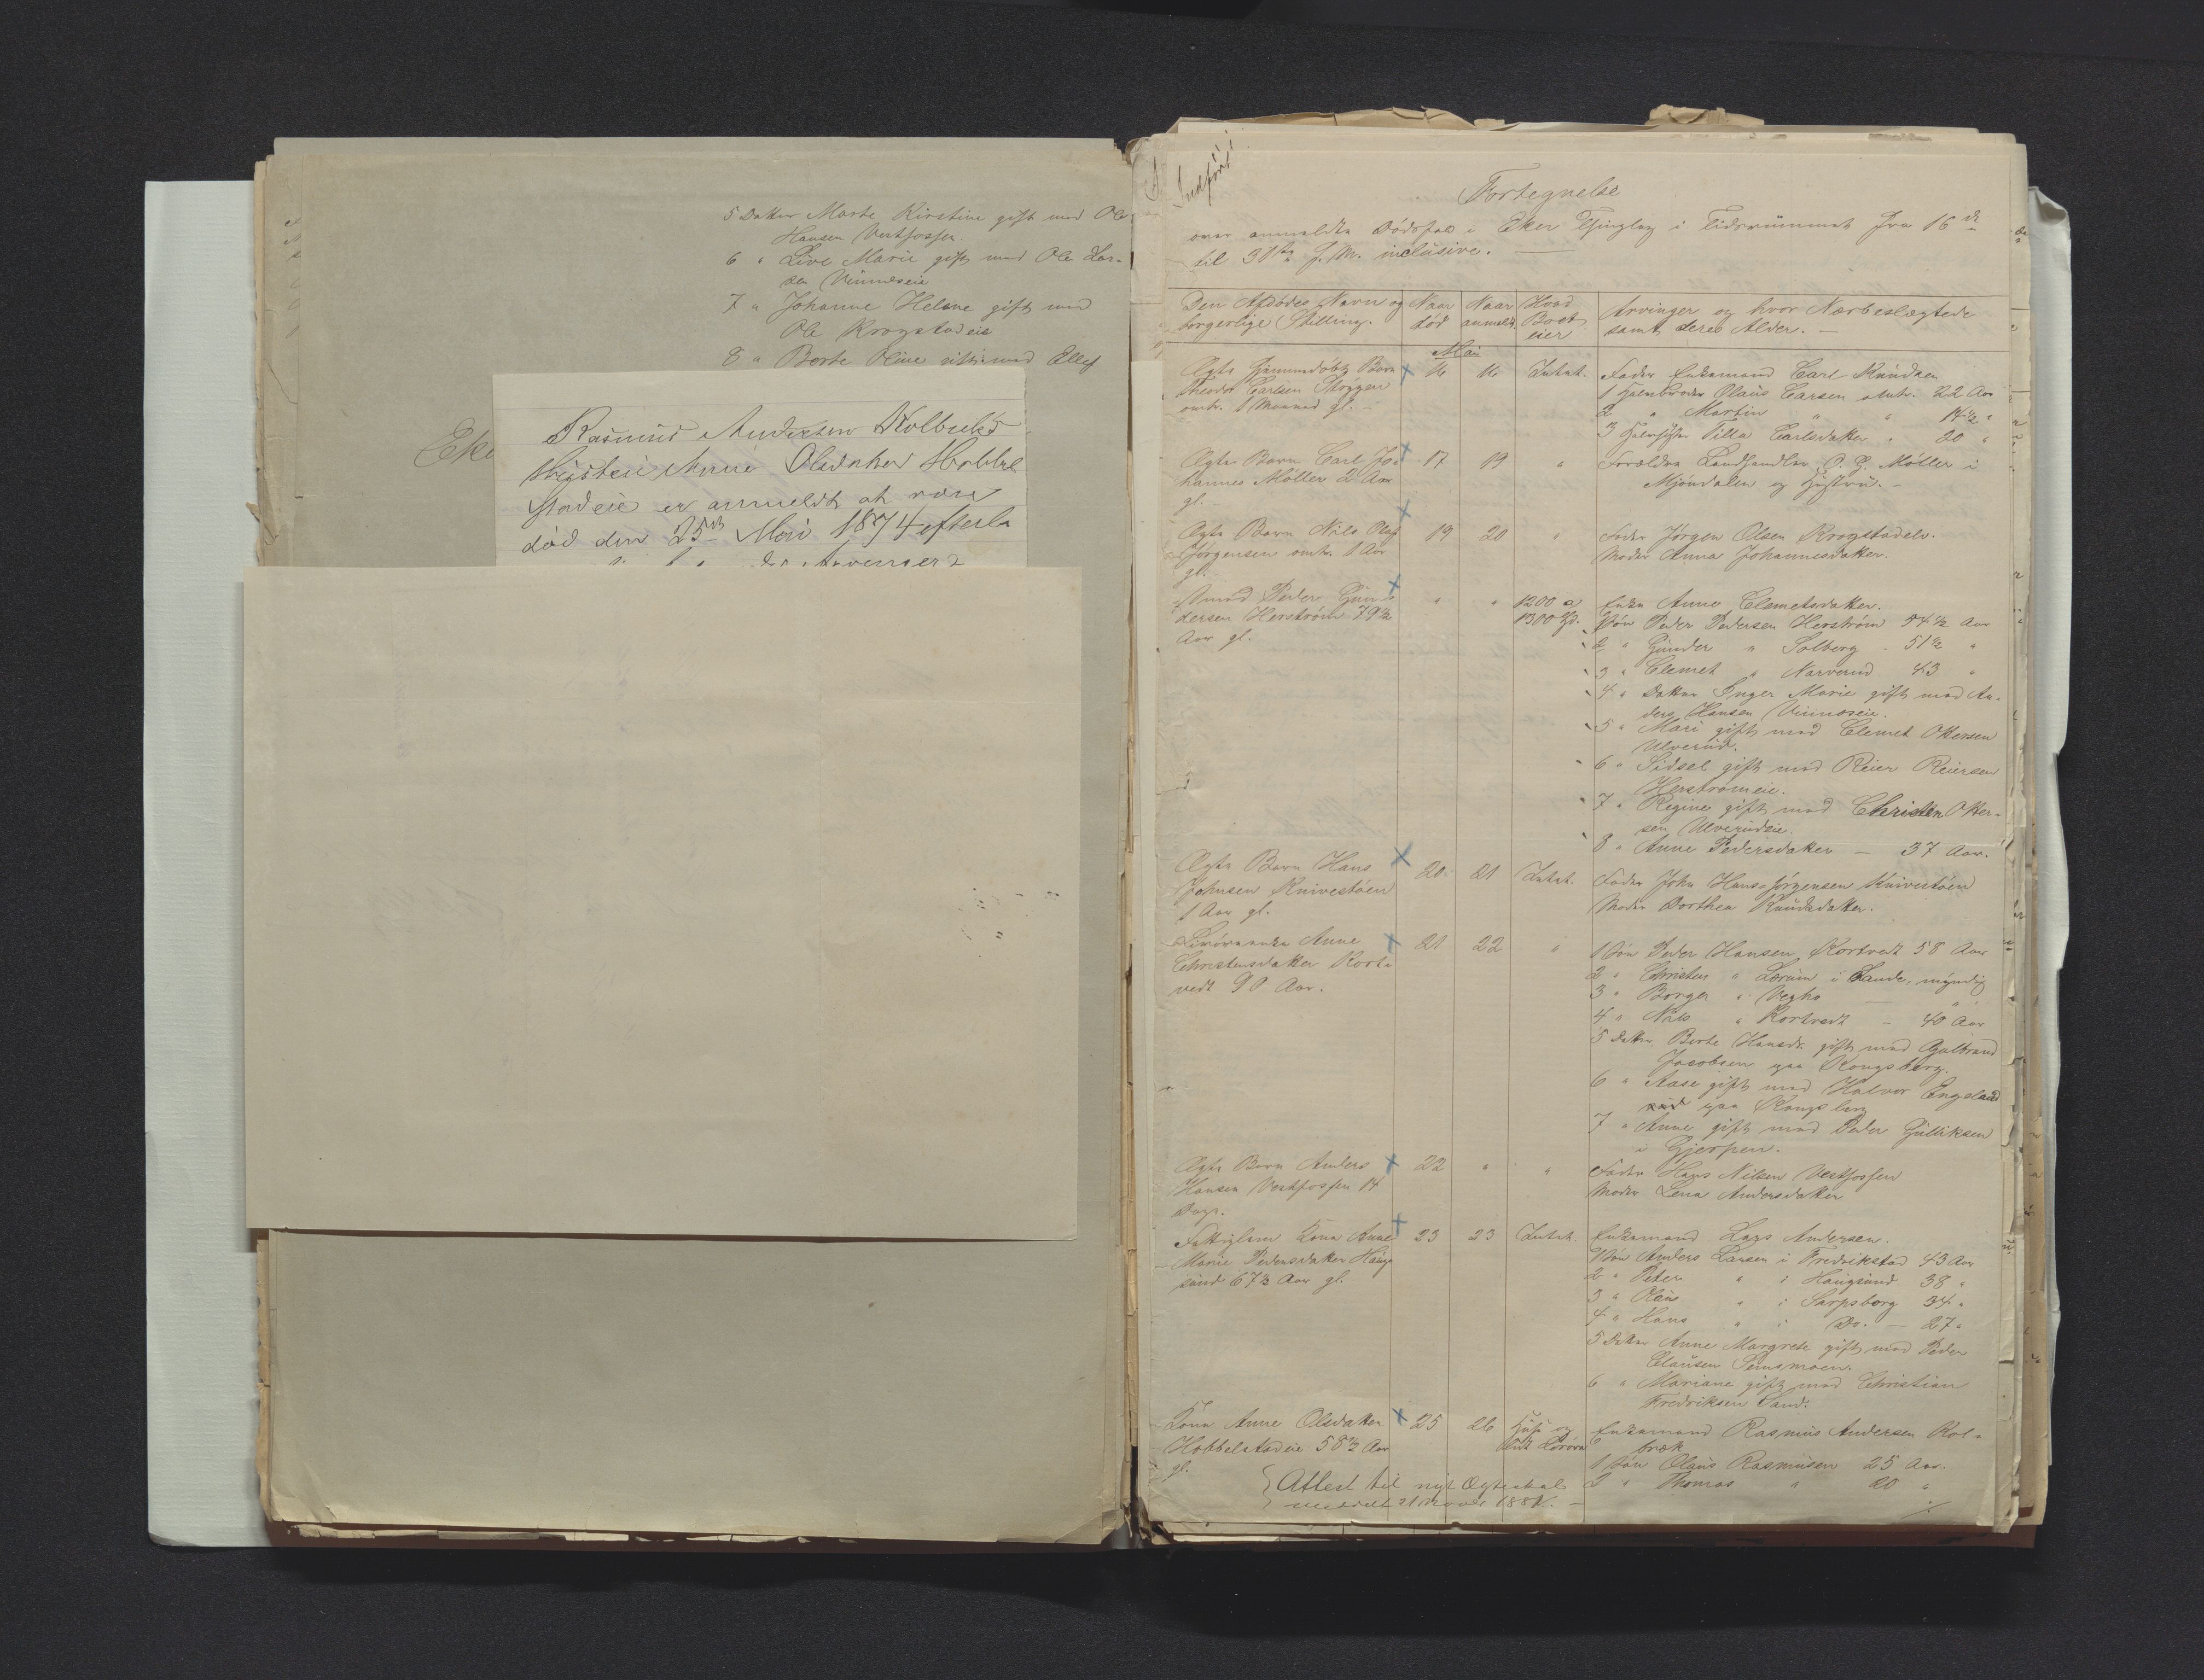 5 Datter Marte Kirstine gift med Ole
Hansen Vestfossen.
6 " Live Marie gift med Ole Lar-
sen Vinnæseie
7 " Johanne Helene gift med
Ole Krogstadeie
8 " Berte Oline gift med Ellef
Eke
Rasmus Andersen Kolbræks
Hustru Anne Olsdatter Hobbel
stadeie er anmeldt at være
død den 25de Mai 1874 efterla
Indført
Fortegnelse
over anmeldte Dødsfald i Eker Thinglag i Tidsrummet fra 16de
til 31te f. M. inclusive.
Den Afdødes Navn og borgerlige Stilling.
Naar død
Naar anmeldt
Hvad Boet eier
Arvinger og hvor Nærbeslægtede samt deres Alder. —
Mai
Ægte Hjemmedøbt Barn 16 16 Intet. Fader Enkemand Carl Knudsen
Theodor Carlsen Skoggen 1 Halvbroder Olaus Carlsen omtr. 22 Aar
omtr. 1 Maaned gl. 2 " Martin " " 14½ "
3 Halvsøster Pilla Carlsdatter " 20 "
Ægte Barn Carl Jo- 17 19 " Forældre Landhandler O. G. Møller i
hannes Møller 2 Aar Mjøndalen og Hustru. -
gl. -
Ægte Barn Nils Olaf 19 20 " Fader Jørgen Olsen Krogstadelv.
Jørgensen omtr. 1 Aar Moder Anna Johannesdatter.
gl. -
Peder Gun- " " 1200 a Enke Anne Clemetsdatter.
dersen Herstrøm 79½ 1300 Spd. 1 Søn Peder Pedersen Herstrøm 54½ Aar
Aar gl. 2 " Gunder " Solberg - 51½ "
3 " Clemet " Narverud 43 "
4 " Datter Inger Marie gift med An-
ders Hansen Vinnæseie.
5 " Mari gift med Clemet Ottersen
Ulverud.
6 " Sidsel gift med Reier Reiersen
Herstrømeie.
7 " Regine gift med Christen Otter-
sen Ulverudeie.
8 " Anne Pedersdatter — 37 Aar.
Ægte Barn Hans 20 21 Intet. Fader John Hans Jørgensen Knivestøen
Johnsen Knivestøen Moder Dorthea Knudsdatter.
1 Aar gl.
Anne 21 22 " 1 Søn Peder Hansen Kortvedt 58 Aar
Christensdatter Kort- 2 " Christen " Lerum i Sande, myndig
vedt 90 Aar. 3 " Borger " — "
4 " Nils " Kortvedt — 40 Aar
5 Datter Berte Hansdr. gift med
Jacobsen paa Kongsberg.
6 " Aase gift med Halvor Engeland
paa Kongsberg
7 " Anne gift med Peder Gulliksen
i Gjerpen.
Ægte Barn Anders 22 " " Fader Hans Nilsen Vestfossen
Hansen Vestfossen 14 Moder Lena Andersdatter
Dage.
Fattiglem Kone Anne 23 23 Intet. Enkemand Lars Andersen.
Marie Pedersdatter Haug- 1 Søn Anders Larsen i Fredrikstad 43 Aar
sund 67½ Aar gl. 2 " Peter " i Haugsund 38 "
3 " Olaus " i Sarpsborg 34 "
4 " Hans " i Do. — 27 "
5 Datter Anne Margrete gift med Peder
Clausen Semsmoen.
6 " Mariane gift med Christian
Fredriksen Sand.
Kone Anne Olsdatter 25 26 Huse og Enkemand Rasmus Andersen Kol-
Hobbelstadeie 58½ Aar lidt Løsøre bræk
gl. 1 Søn Olaus Rasmusen 25 Aar.
2 " Thomas " 20 "
Attest til nyt Ægteskab
meddelt 21 1881. —